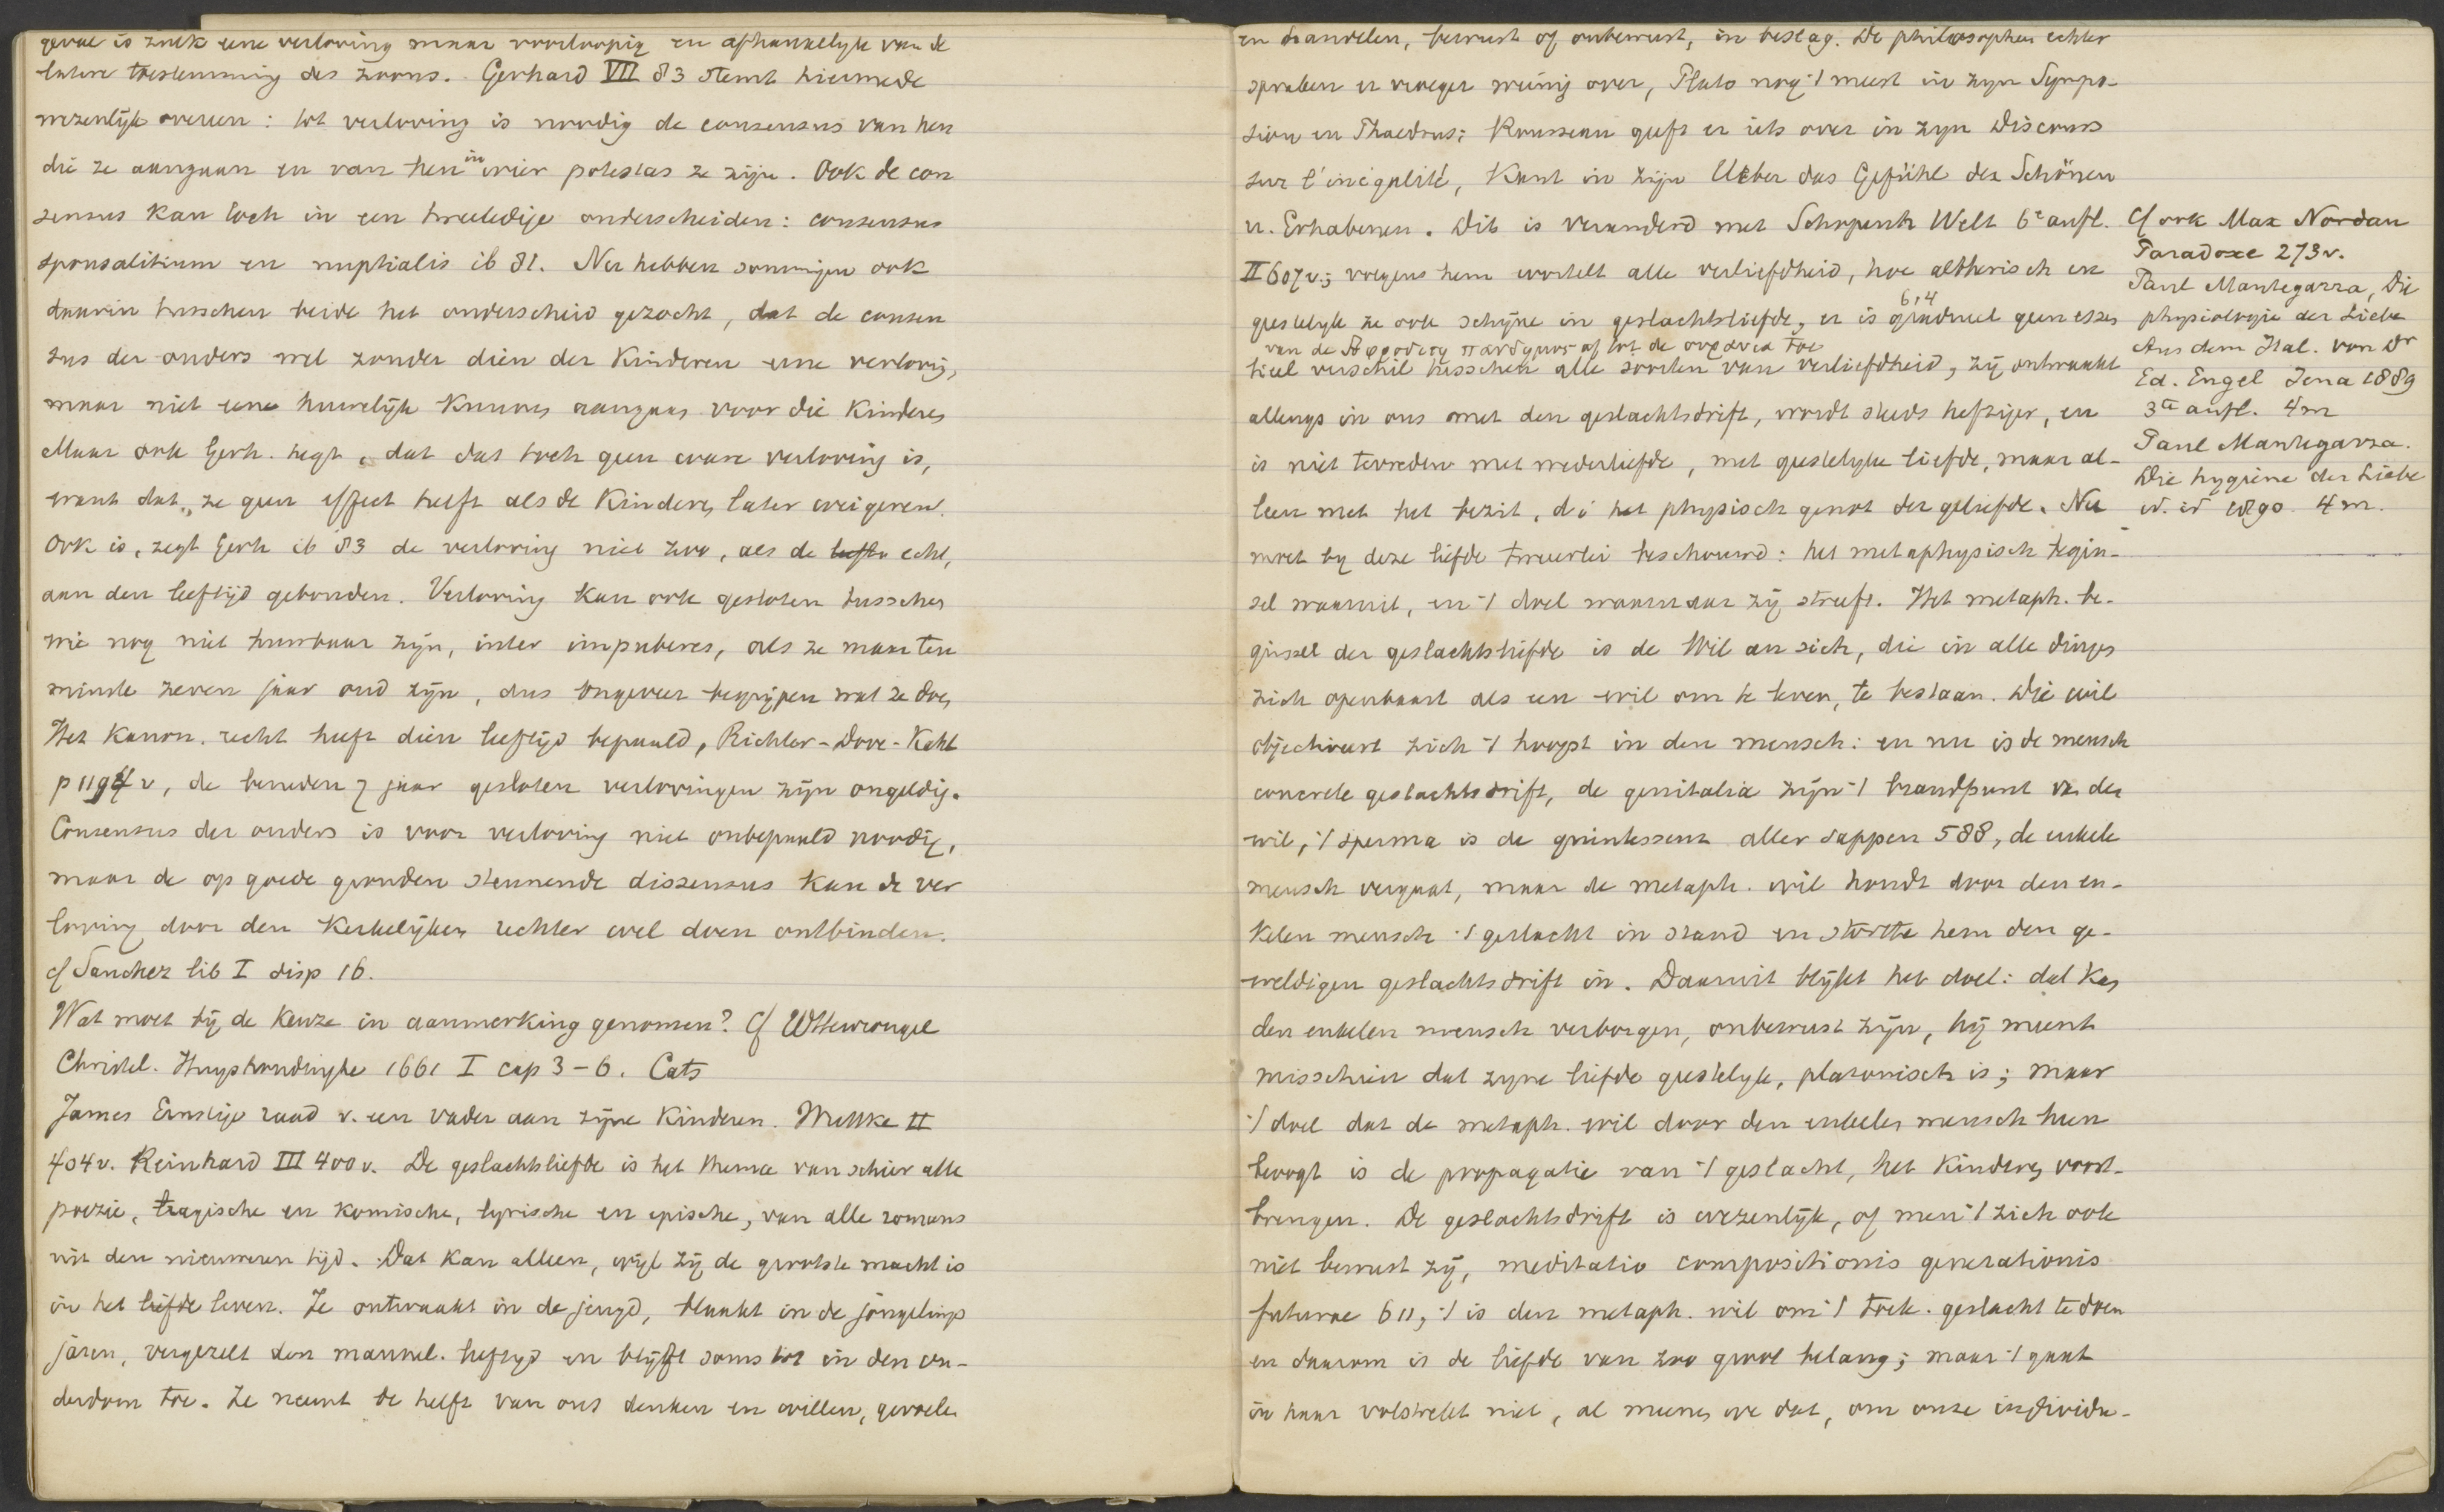 geval is zulk eene verloving maar voorloopig en afhankelyk van de
latere toestemming des zoons. Gerhard VII 83 stemt hiermede
wezenlijk overeen: tot verloving is noodig de consensus van hen
die ze aangaan en van hen in wier potestas ze zijn. Ook de con
sensus kan toch in een tweeledige onderscheiden: consensus
sponsalitium en nuptialis ib 81. Nu hebben sommigen ook
daarin tusschen beide het onderscheid gezocht, dat de consen
sus der ouders wel zonder dien der kinderen eene verloving,
maar niet eene huwelijk kunnen aangaan voor die kinderen
Maar ook Gerh. zegt, dat dat toch geen ware verloving is,
want dat ze geen effect heeft als de kinderen later weigeren.
Ook is, zegt Gerh ib 83 de verloving niet zoo, als de echt,
aan den leeftijd gebonden. Verloving kan ook gesloten tusschen
wie nog niet huwbaar zijn, inter impuberes, als ze maar ten
minste zeven jaar oud zijn, dus ongeveer begrijpen wat ze doen
Het kanon. recht heeft dien leeftijd bepaald, Richter-Dove-Kahl
p 1194 v, de beneden 7 jaar gesloten verlovingen zijn ongeldig.
Consensus der ouders is voor verloving niet onbepaald noodig,
maar de op goede gronden steunende dissensus kan de ver
loving door den kerkelijken rechter wel doen ontbinden.
cf Sanchez lib I disp 16.
Wat moet bij de keuze in aanmerking genomen? Cf Wttewrongel
Christel. Huyshoudinghe 1661 I cap 3-6. Cats
James Ernstige raad v. een vader aan zijne kinderen. Wuttke II
404v. Reinhard III 400v. De geslachtsliefde is het thema van schier alle
poezie, tragische en komische, lyrische en epische, van alle romans
uit den nieuweren tijd. Dat kan alleen, wijl zij de grootste macht is
in het leven. Ze ontwaakt in de jeugd, blaakt in de jongelings
jaren, vergezelt den mannel. leeftijd en blijft soms tot in den ou-
derdom toe. Ze neemt de helft van ons denken en willen, gevoelen
en handelen, bewust of onbewust, in beslag. De philosophen echter
spraken er vroeger weinig over, Plato nog 't meest in zijn Sympo-
sion en Phaedrus; Rousseau geeft er iets over in zyn Discours
sur l'inégalité, Kant in zijn Ueber das Gefühl des Schönen
u. Erhabenen. Dit is veranderd met Schopenh Welt 6e aufl.
II 607v.; volgens hem wortelt alle verliefdheid, hoe aetherisch en
geestelyk ze ook schijne in geslachtsliefde, er is gradueel geen essen
614
van de Αφροδιτη πανδημος af tot de ουρανια toe
tieel verschil tusschen alle soorten van verliefdheid, zij ontwaakt
allengs in ons met den geslachtsdrift, wordt steeds heftiger, en
is niet tevreden met wederliefde, met geestelyke liefde, maar al-
leen met het bezit, d i het physisch genot der geliefde. Nu
moet by deze liefde tweeerlei beschouwd: het metaphysisch begin-
sel waaruit, en 't doel waarnaar zij streeft. Het metaph. be-
ginsel der geslachtsliefde is de Wil an sich, die in alle dingen
zich openbaart als een wil om te leven, te bestaan. Die wil
objectiveert zich 't hoogst in den mensch: en nu is de mensch
concrete geslachtsdrift, de genitalia zijn 't brandpunt van den
wil, 't sperma is de quintessens aller sappen 588, de enkele
mensch vergaat, maar de metaph. wil houdt door den en-
kelen mensch 't geslacht in stand en stortte hem den ge-
weldigen geslachtsdrift in. Daaruit blijkt het doel: dat kan
den enkelen mensch verborgen, onbewust zijn, hij meent
misschien dat zyne liefde geestelyk, platonisch is; maar
't doel dat de metaph. wil door den enkelen mensch heen
beoogt is de propagatie van 't geslacht, het kinderen voort-
brengen. De geslachtsdrift is wezenlijk, of men 't zich ook
niet bewust zij, meditatio compositionis generationis
futurae 611, 't is den metaph. wil om 't toek. geslacht te doen
en daarom is de liefde van zoo groot belang; maar 't gaat
in haar volstrekt niet, al meenen we dat, om onze individu-
Cf ook Max Nordau
Paradoxe 273v.
Paul Mantegazza, Die
physiologie der Liebe
Aus dem Ital. von Dr
Ed. Engel Jena 1889
3te aufl. 4m
Paul Mantegazza.
Die hygiene der Liebe
id. id 1890 4m.